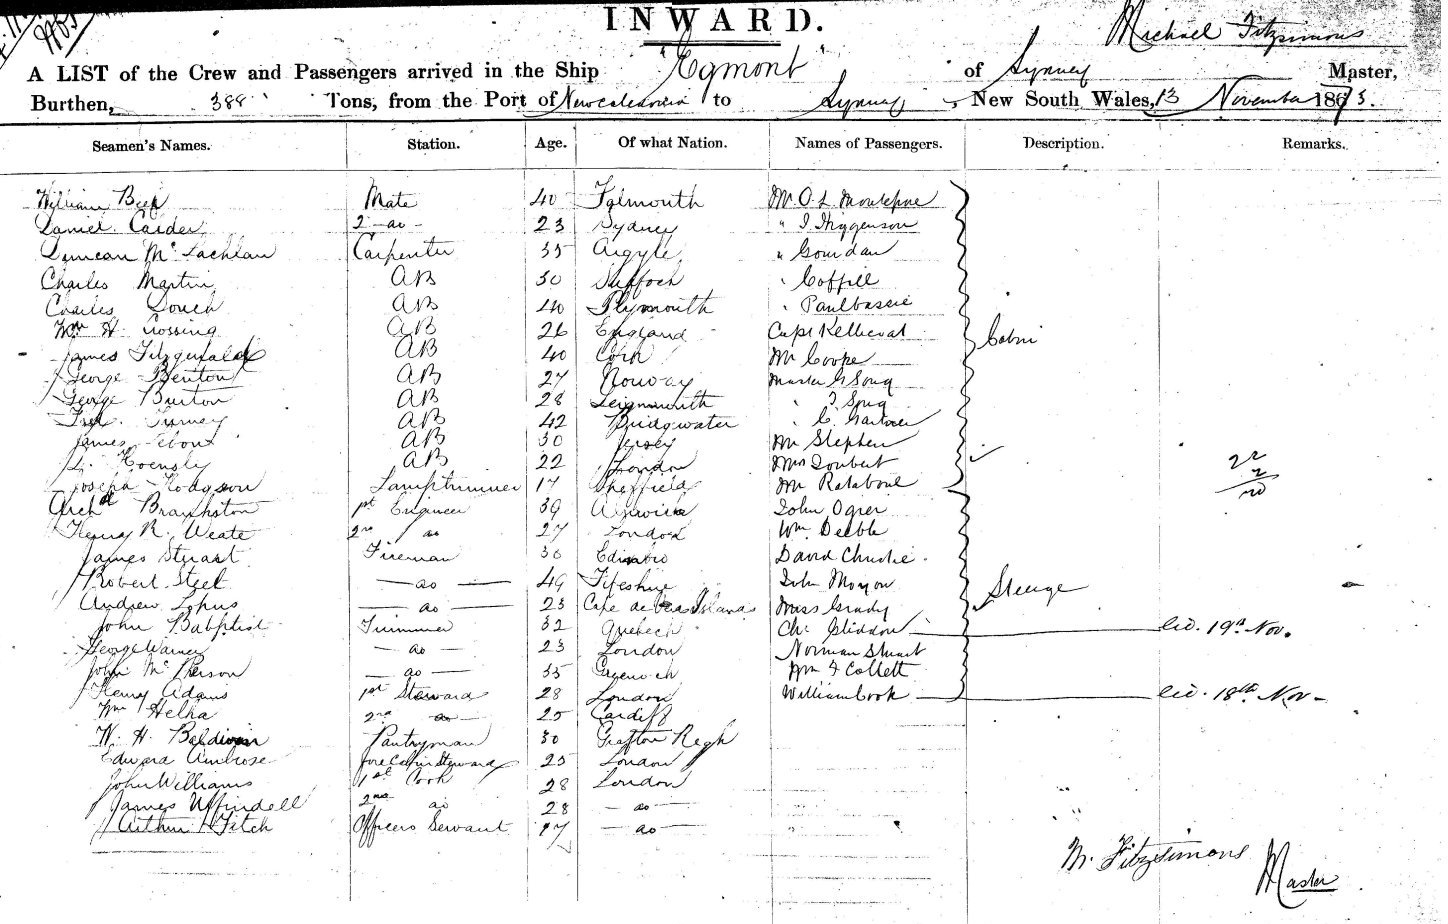 INWARD.
Michael Fitzsimons
A LIST of the Crew and Passengers arrived in the Ship "Egmont" of Sydney Master,
Burthen, 388 Tons, from the Port of New Caledonia to Sydney, New South Wales, 13 November 1873.
Seamen's Names. Station. Age. Of what Nation. Names of Passengers. Description. Remarks.
William Mate 40 Falmouth Mr O. L. Montefiore
Daniel Carder 2 - do - 23 Sydney " J. Higgenson
Duncan Mc Lachlan Carpenter 35 Argyle " Gourdan
Charles Martin AB 30 Suffock " Coffill
Charles AB 40 Plymouth "
Wm H Crossing AB 26 England Capt Cabin
James Fitzgerald AB 40 Cork Mr Cooper
George Benton AB 27 Norway Master G
George Burton AB 28 Teignmouth "
Fred. AB 42 Bridgwater " C.
James AB 30 Jersey Mr Stephen
AB 22 London Mrs Joubert 22
Joseph Hodgson Lamptrimmer 17 Sheffield Mr
Archd Brankston 1st Engineer 39 John
Henry R. Weate 2nd do 27 London Wm Deeble
James Stuart Fireman 30 David Christie.
Robert Steel — do — 49 Fifeshire John
Andrew — do — 23 Cape de Islands Miss Grady
John Babptist Trimmer 32 Quebech Chs Gliddon 19th Nov.
George Warner — do — 23 London Norman Stuart
John Mc Pherson — do — 35 Wm F Collett
Henry Adams 1st Steward 28 London William Cook 18th Nov -
Wm 2nd do 25 Cardiff
W. H. Baldwin Pantryman 30 Grafton
Edward Ambrose Fore Cabin Steward 25 London
John Williams 1st Cook 28 London
James Uffindell 2nd do 28 — do —
Arthur Fitch Officers Servant 17 — do —
M. Fitzsimons
Master